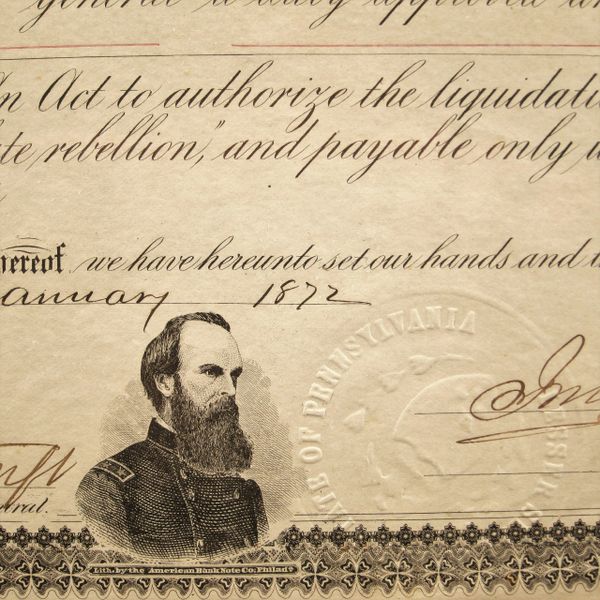 general is duly approved an
An Act to authorize the liquidati
ate rebellion", and payable only u
hereof we have hereunto set our hands and
anuary 1872
STATE OF PENNSYLVANIA
eral.
Lith. by the American Bank Note Co. Philada